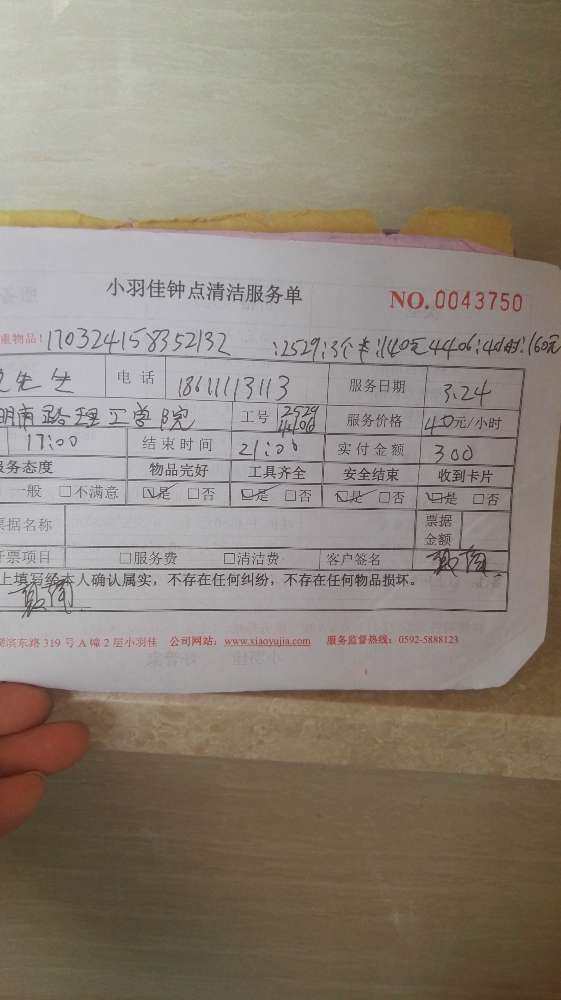 小羽佳钟点清洁服务单 NO.0043750
重物品！170324158352132 :2529:3个半:140元 4406:4小时:160元
先生 电话 18611113113 服务日期 3.24
明南路理工学院 工号 2529 4406 服务价格 40元/小时
17:00 结束时间 21:00 实付金额 300
服务态度 物品完好 工具齐全 安全结束 收到卡片
一般 □不满意 ☑是 □否 ☑是 □否 ☑是 □否 ☑是 □否
票据名称 票据金额
开票项目 □服务费 □清洁费 客户签名
上填写经本人确认属实，不存在任何纠纷，不存在任何物品损坏。
湖滨东路 319 号 A 幢 2 层小羽佳 公司网站：www.xiaoyujia.com 服务监督热线：0592-5888123